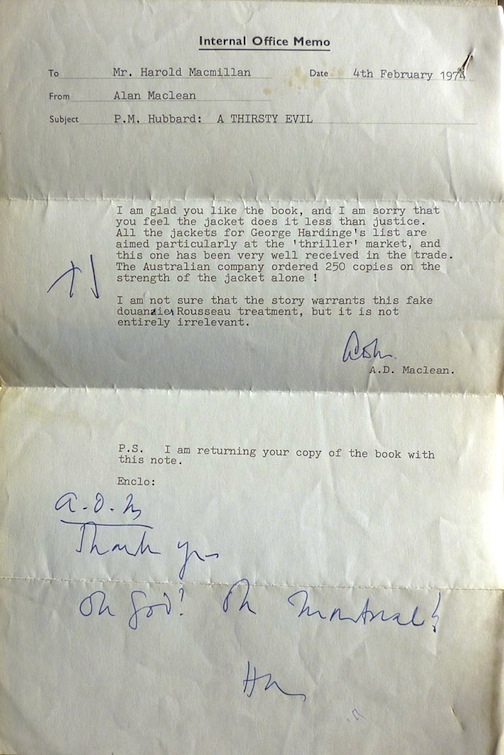 Internal Office Memo
To Mr. Harold Macmillan Date 4th February 1974
From Alan Maclean
Subject P.M. Hubbard: A THIRSTY EVIL
I am glad you like the book, and I am sorry that
you feel the jacket does it less than justice.
All the jackets for George Hardinge's list are
aimed particularly at the 'thriller' market, and
this one has been very well received in the trade.
The Australian company ordered 250 copies on the
strength of the jacket alone !
I am not sure that the story warrants this fake
douanier Rousseau treatment, but it is not
entirely irrelevant.
A.D. Maclean.
P.S. I am returning your copy of the book with
this note.
Enclo:
A.D.M
Thank you
Oh God! Oh Montreal!
HM